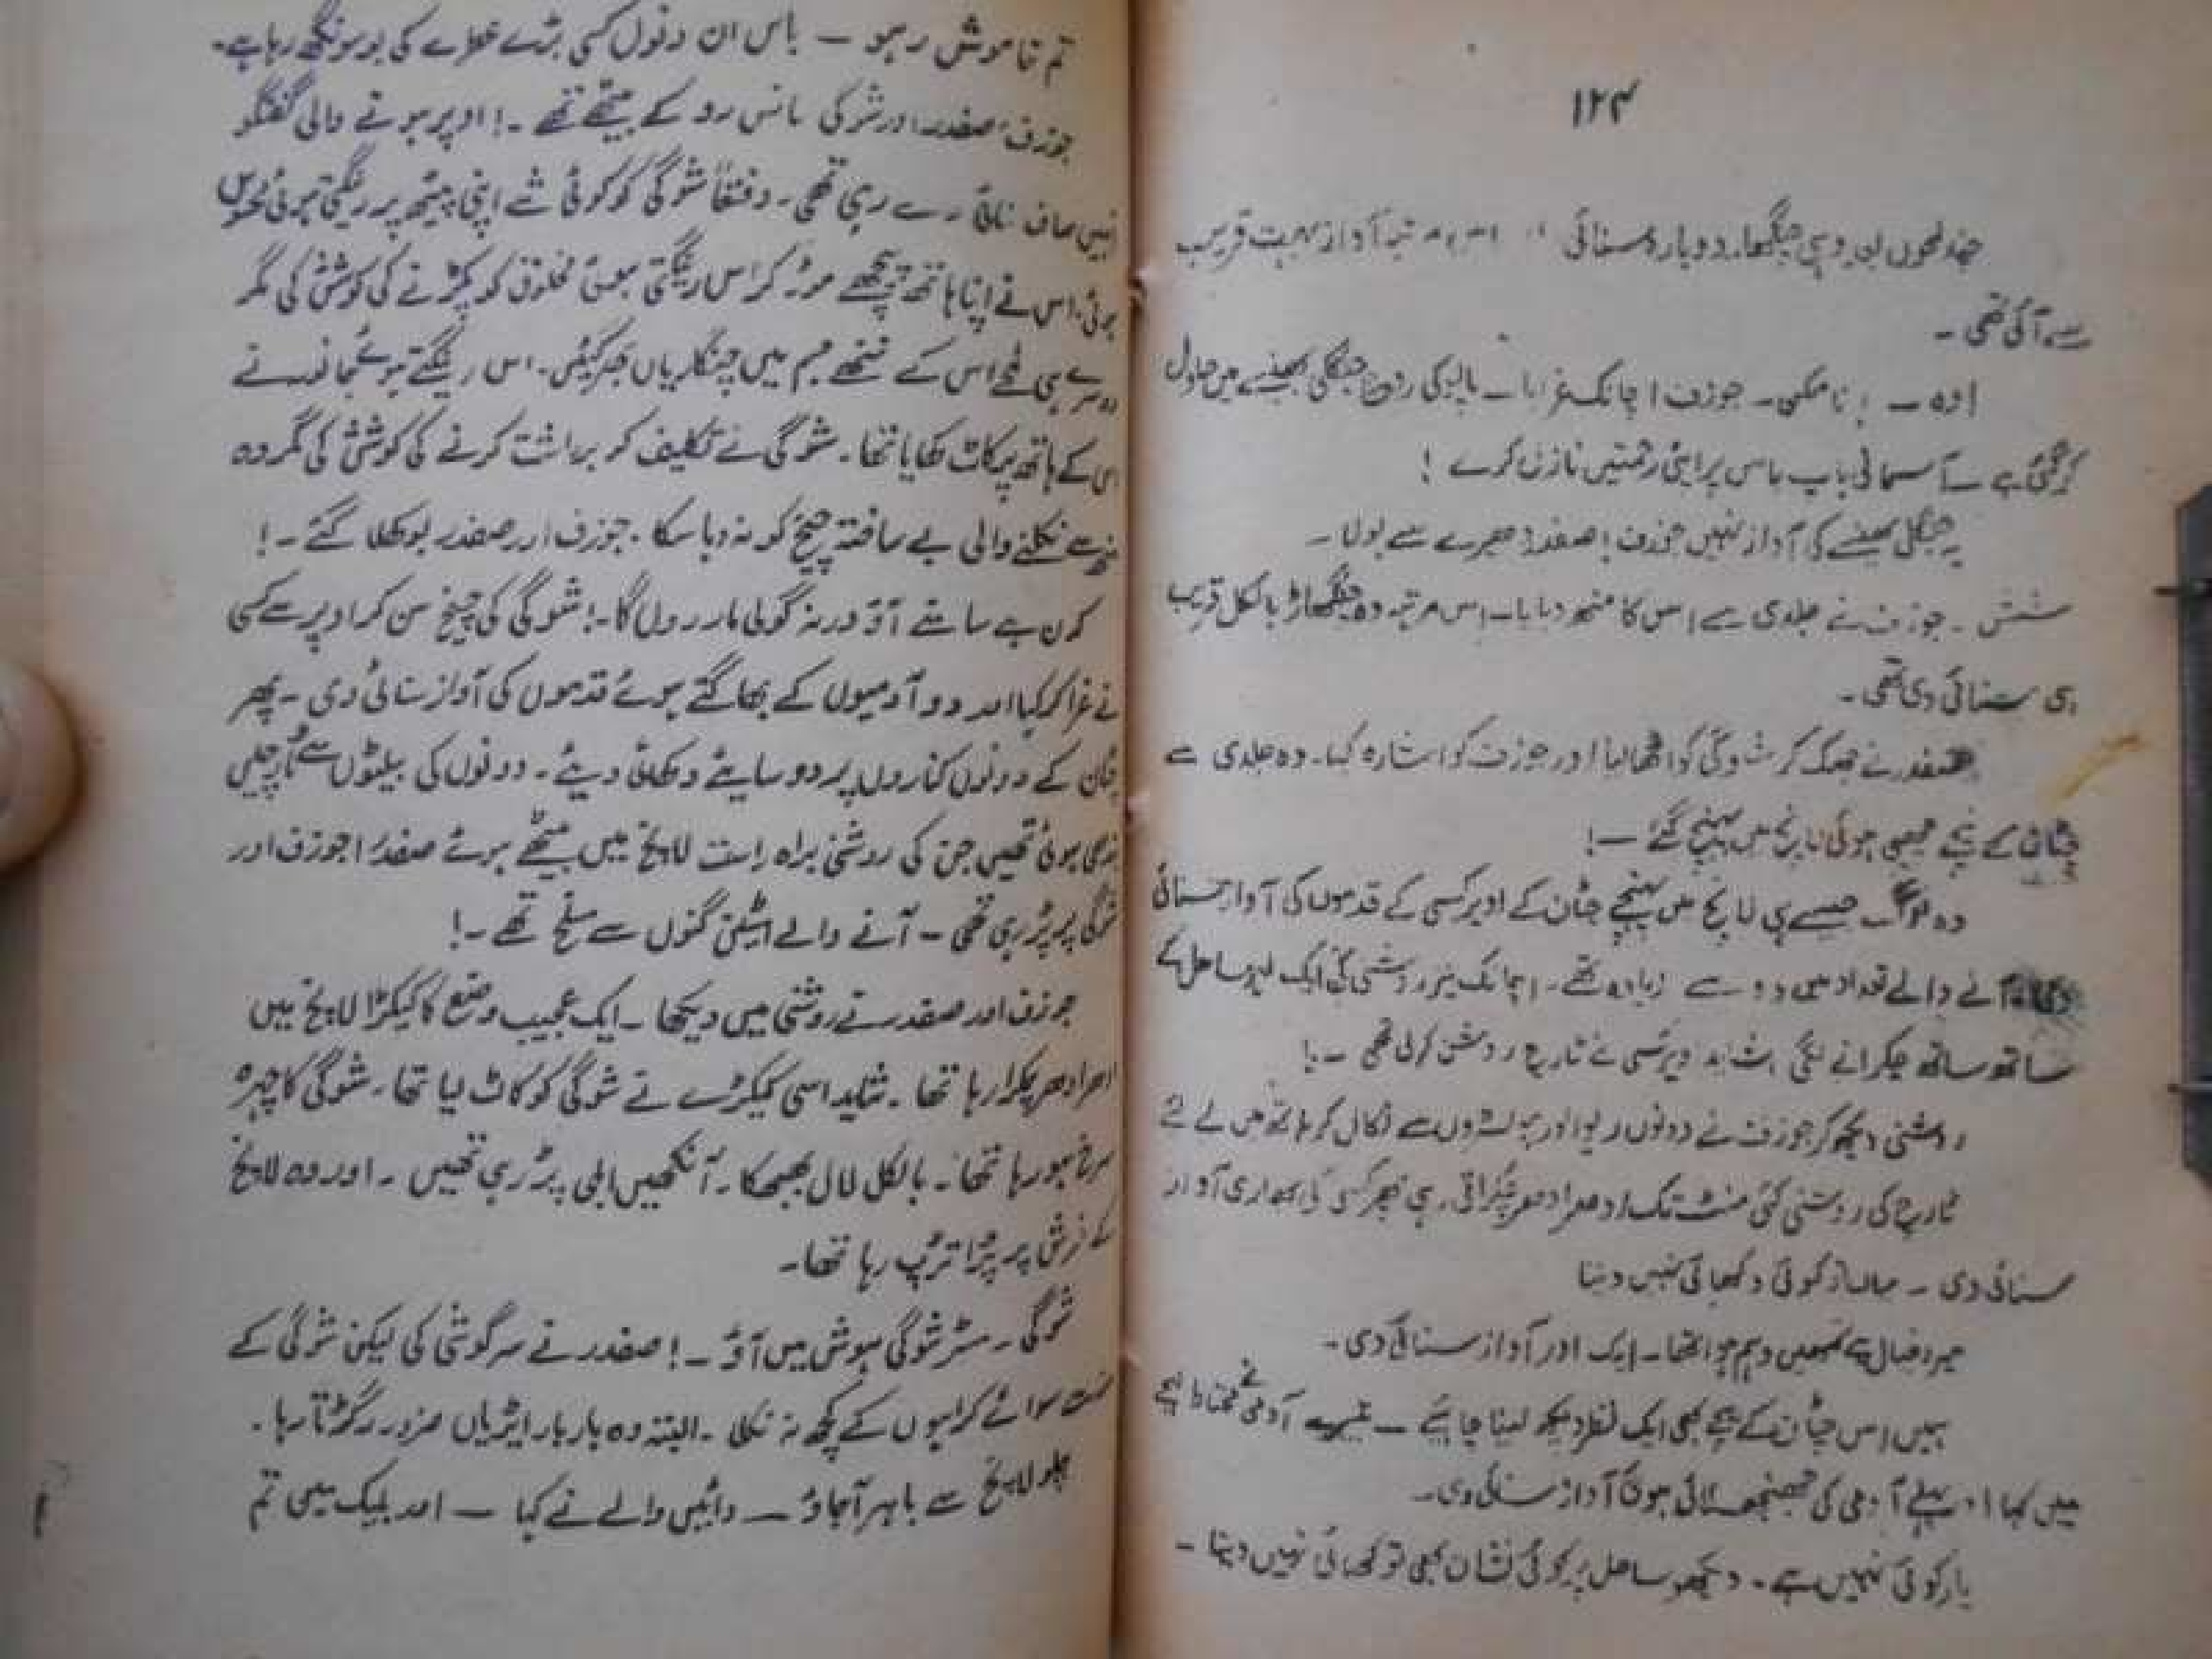 ۱۲۴
چند لمحوں بعد وہی چنگھاڑ دوبارہ سنائی آواز بہت قریب
سے آئی تھی ۔
اوہ ۔ ! نا ممکن ۔ جوزف اچانک غرایا ۔ جنگلی بھینسے میں حلول
کر گئی ہے ۔ آسمانی باپ باس پر اپنی رحمتیں نازل کرے !
یہ جنگلی بھینسے کی آواز نہیں جوزف ! صفدر دھیرے سے بولا ۔
شش ۔ جوزف نے جلدی سے اس کا منھ دبایا ۔ اس مرتبہ وہ چنگھاڑ بالکل قریب
ہی سنائی دی تھی ۔
صفدر نے جھک کر شوگی کو اٹھالیا اور جوزف کو اشارہ کیا ۔ وہ جلدی سے
چٹان کے نیچے چھپی ہوئی لانچ میں پہنچ گئے ۔ !
وہ لوگ جیسے ہی لانچ میں پہنچے چٹان کے اوپر کسی کے قدموں کی آواز سنائی
دی ۔ آنے والے تعداد میں دو سے زیادہ تھے ۔ اچانک تیز روشنی کی ایک لہر ساحل کے
ساتھ ساتھ چکرانے لگی شاید اوپر کسی نے ٹارچ روشن کرلی تھی ۔ !
روشنی دیکھ کر جوزف نے دونوں ریوالور ہولسٹروں سے نکال کر ہاتھ میں لے لئے
ٹارچ کی روشنی کئی منٹ تک ادھر ادھر چکراتی رہی پھر کسی کی بھاری آواز
سنائی دی ۔ یہاں تو کوئی دکھائی نہیں دیتا
میرا خیال ہے تمھیں وہم ہوا تھا ۔ ایک اور آواز سنائی دی ۔
ہمیں اس چٹان کے نیچے بھی ایک نظر دیکھ لینا چاہیئے ۔ تیسرے آدمی نے محتاط لہجے
میں کہا اور پہلے آدمی کی جھنجھلائی ہوئی آواز سنائی دی ۔
یار کوئی نہیں ہے ۔ دیکھو ساحل پر کوئی نشان بھی تو دکھائی نہیں دیتا ۔
تم خاموش رہو ۔ باس ان دنوں کسی بڑے خطرے کی بو سونگھ رہا ہے ۔
جوزف، صفدر اور شوگی سانس روکے بیٹھے تھے ۔ ! اوپر ہونے والی گفتگو
انہیں صاف سنائی دے رہی تھی ۔ دفعتاً شوگی کو کوئی شے اپنی پیٹھ پر رینگتی ہوئی محسوس
ہوئی ۔ اس نے اپنا ہاتھ پیچھے موڑ کر اس رینگتی ہوئی مخلوق کو پکڑنے کی کوشش کی مگر
دوسرے ہی لمحے اس کے ننھے جسم میں چنگاریاں بھر گئیں ۔ اس رینگتے ہوئے جانور نے
اس کے ہاتھ پر کاٹ کھایا تھا ۔ شوگی نے تکلیف کو برداشت کرنے کی کوشش کی مگر وہ
منہ سے نکلنے والی بے ساختہ چیخ کو نہ دبا سکا ۔ جوزف اور صفدر بوکھلا گئے ۔ !
کون ہے سامنے آؤ ورنہ گولی مار دوں گا ۔ ! شوگی کی چیخ سن کر اوپر سے کسی
نے غرا کر کہا اور دو آدمیوں کے بھاگتے ہوئے قدموں کی آواز سنائی دی ۔ پھر
چٹان کے دونوں کناروں پر دو سایئے دکھائی دیئے ۔ دونوں کی بیلٹوں سے ٹارچیں
بندھی ہوئی تھیں جن کی روشنی براہ راست لانچ میں بیٹھے ہوئے صفدر، جوزف اور
شوگی پر پڑ رہی تھی ۔ آنے والے اسٹین گنوں سے مسلح تھے ۔ !
جوزف اور صفدر نے روشنی میں دیکھا ۔ ایک عجیب وضع کا کیکڑا لانچ میں
ادھر ادھر چکرا رہا تھا ۔ شاید اسی کیکڑے نے شوگی کو کاٹ لیا تھا ۔ شوگی کا چہرہ
سرخ ہو رہا تھا ۔ بالکل لال بھبھوکا ۔ آنکھیں ابلی پڑ رہی تھیں ۔ اور وہ لانچ
کے فرش پر پڑا تڑپ رہا تھا ۔
شوگی ۔ مسٹر شوگی ہوش میں آؤ ۔ ! صفدر نے سرگوشی کی لیکن شوگی کے
سوائے کراہوں کے کچھ نہ نکلی ۔ البتہ وہ بار بار ایڑیاں ضرور رگڑتا رہا ۔
چلو لانچ سے باہر آجاؤ ۔ دائیں والے نے کہا ۔ اور بلیک میں تم